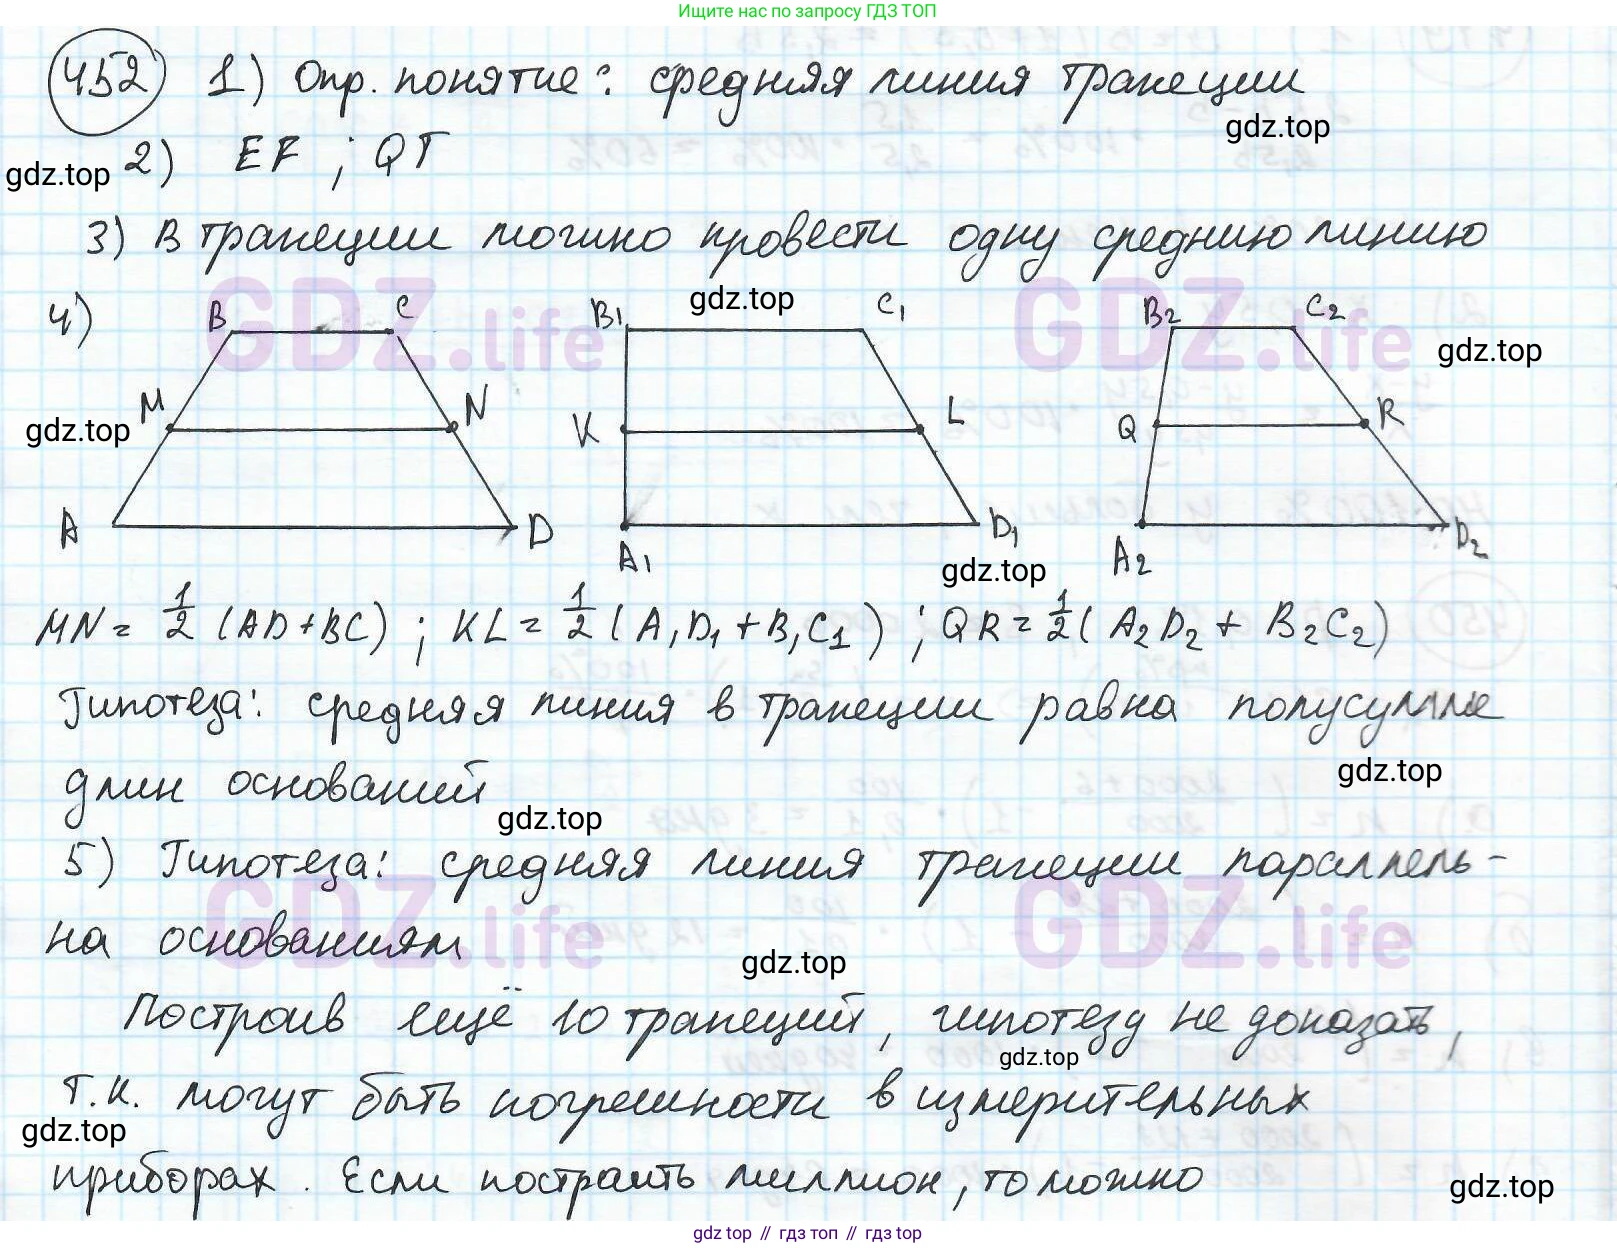 Ищите нас по запросу ГДЗ ТОП
452 1) Опр. понятие: средняя линия трапеции
gdz.top
gdz.top 2) EF ; QT
3) В трапеции можно провести одну среднюю линию
GDZ.life GDZ.life
gdz.top
4) B C B1 C1 B2 C2
gdz.top
M N K L Q R
gdz.top
A D A1 D1 A2 D2
gdz.top
MN = 1/2 (AD+BC) ; KL = 1/2 (A1D1 + B1C1) ; QR = 1/2 (A2D2 + B2C2)
Гипотеза: средняя линия в трапеции равна полусумме
gdz.top
длин оснований
gdz.top
5) Гипотеза: средняя линия трапеции параллель-
GDZ.life GDZ.life
на основаниям
gdz.top
Построив ещё 10 трапеций, гипотезу не доказать,
gdz.top
т.к. могут быть погрешности в измерительных
gdz.top
приборах. Если построить миллион, то можно
gdz.top
gdz top // гдз топ // gdz.top